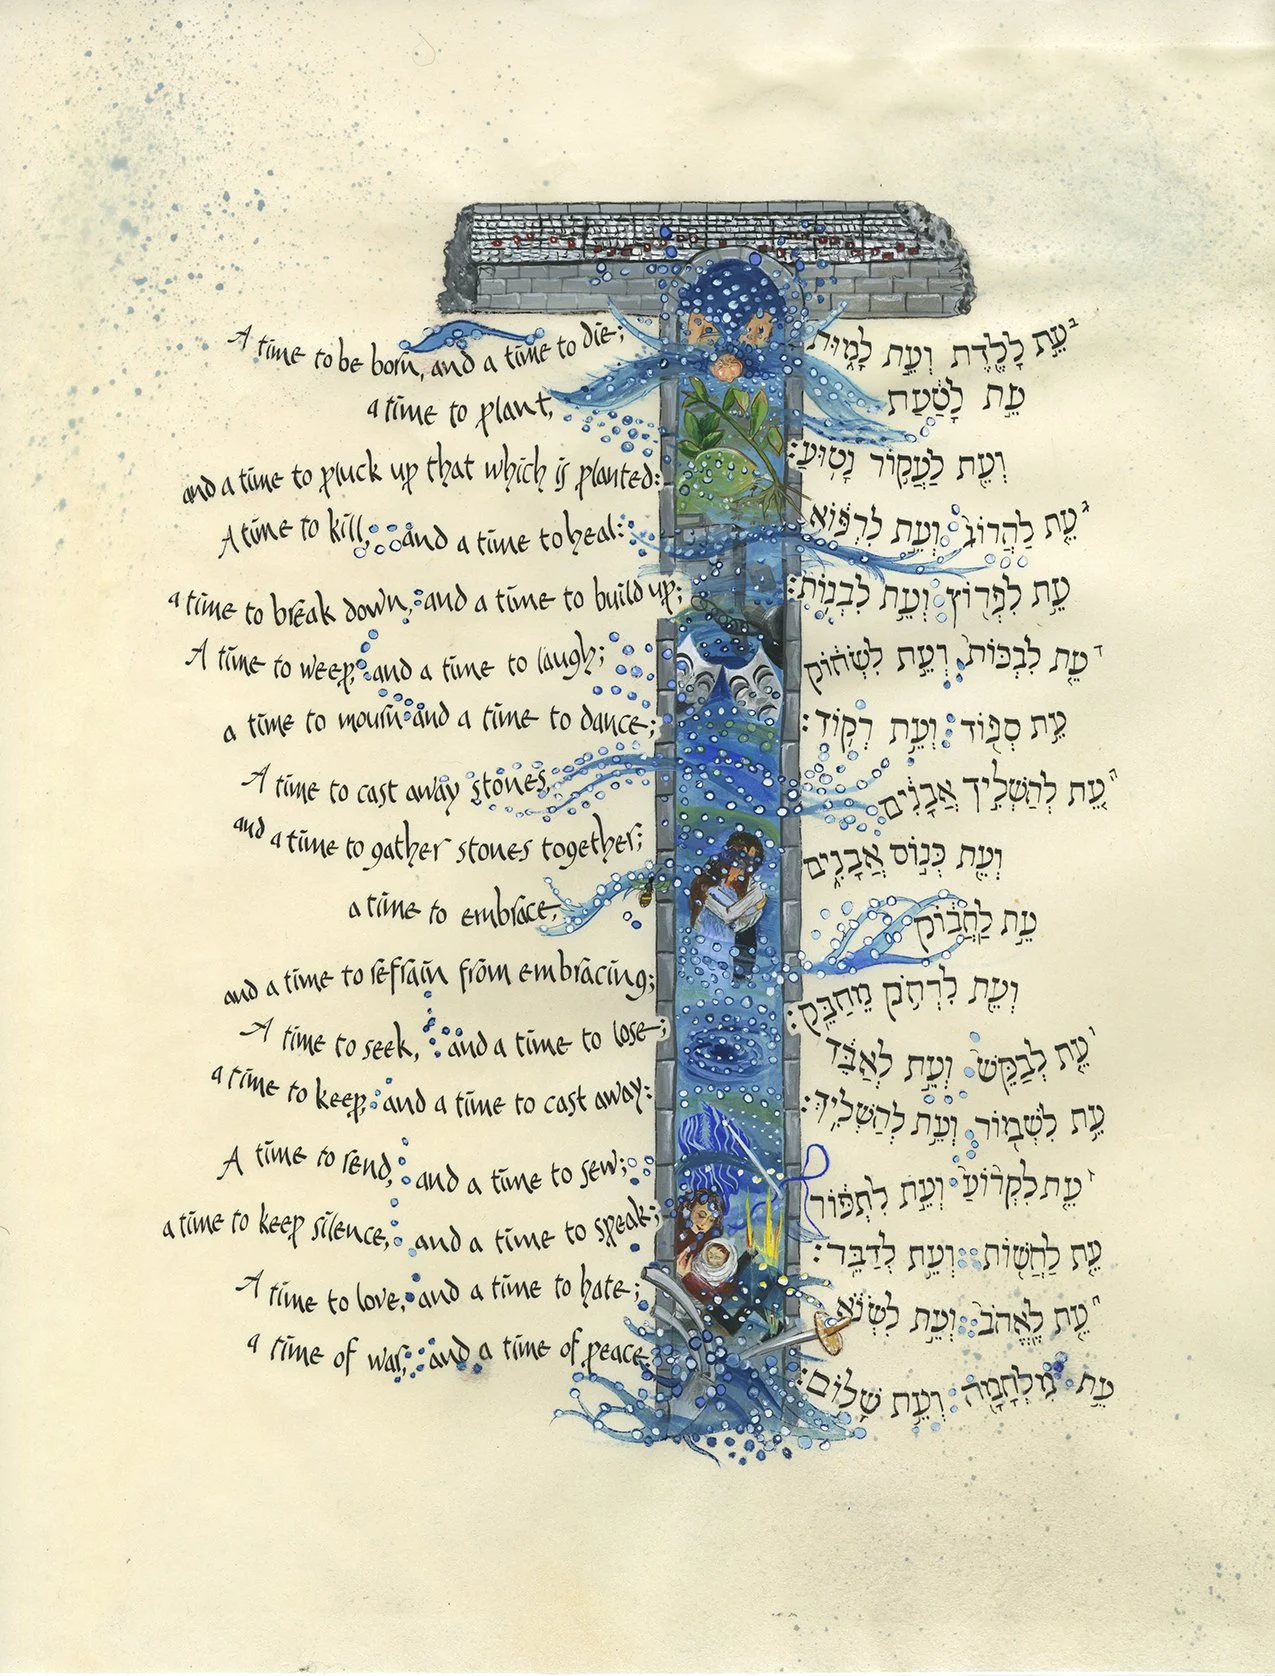 A time to be born, and a time to die;
a time to plant,
and a time to pluck up that which is planted:
A time to kill, and a time to heal:
a time to break down, and a time to build up;
A time to weep, and a time to laugh;
a time to mourn and a time to dance;
A time to cast away stones,
and a time to gather stones together;
a time to embrace,
and a time to refrain from embracing;
A time to seek, and a time to lose;
a time to keep, and a time to cast away:
A time to rend, and a time to sew;
a time to keep silence, and a time to speak;
A time to love, and a time to hate;
a time of war, and a time of peace.
ב עֵת לָלֶדֶת וְעֵת לָמוּת
עֵת לָטַעַת
וְעֵת לַעֲקוֹר נָטוּעַ:
ג עֵת לַהֲרוֹג וְעֵת לִרְפּוֹא
עֵת לִפְרוֹץ וְעֵת לִבְנוֹת:
ד עֵת לִבְכּוֹת וְעֵת לִשְׂחוֹק
עֵת סְפוֹד וְעֵת רְקוֹד:
ה עֵת לְהַשְׁלִיךְ אֲבָנִים
וְעֵת כְּנוֹס אֲבָנִים
עֵת לַחֲבוֹק
וְעֵת לִרְחֹק מֵחַבֵּק:
ו עֵת לְבַקֵּשׁ וְעֵת לְאַבֵּד
עֵת לִשְׁמוֹר וְעֵת לְהַשְׁלִיךְ:
ז עֵת לִקְרוֹעַ וְעֵת לִתְפּוֹר
עֵת לַחֲשׁוֹת וְעֵת לְדַבֵּר:
ח עֵת לֶאֱהֹב וְעֵת לִשְׂנֹא
עֵת מִלְחָמָה וְעֵת שָׁלוֹם: